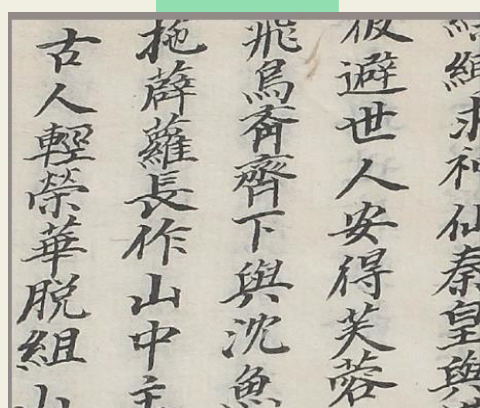 求神仙秦皇與
彼避世人安得芙蓉
飛鳥齊下與沈魚
拖薜蘿長作山中主
古人輕榮華脱組山